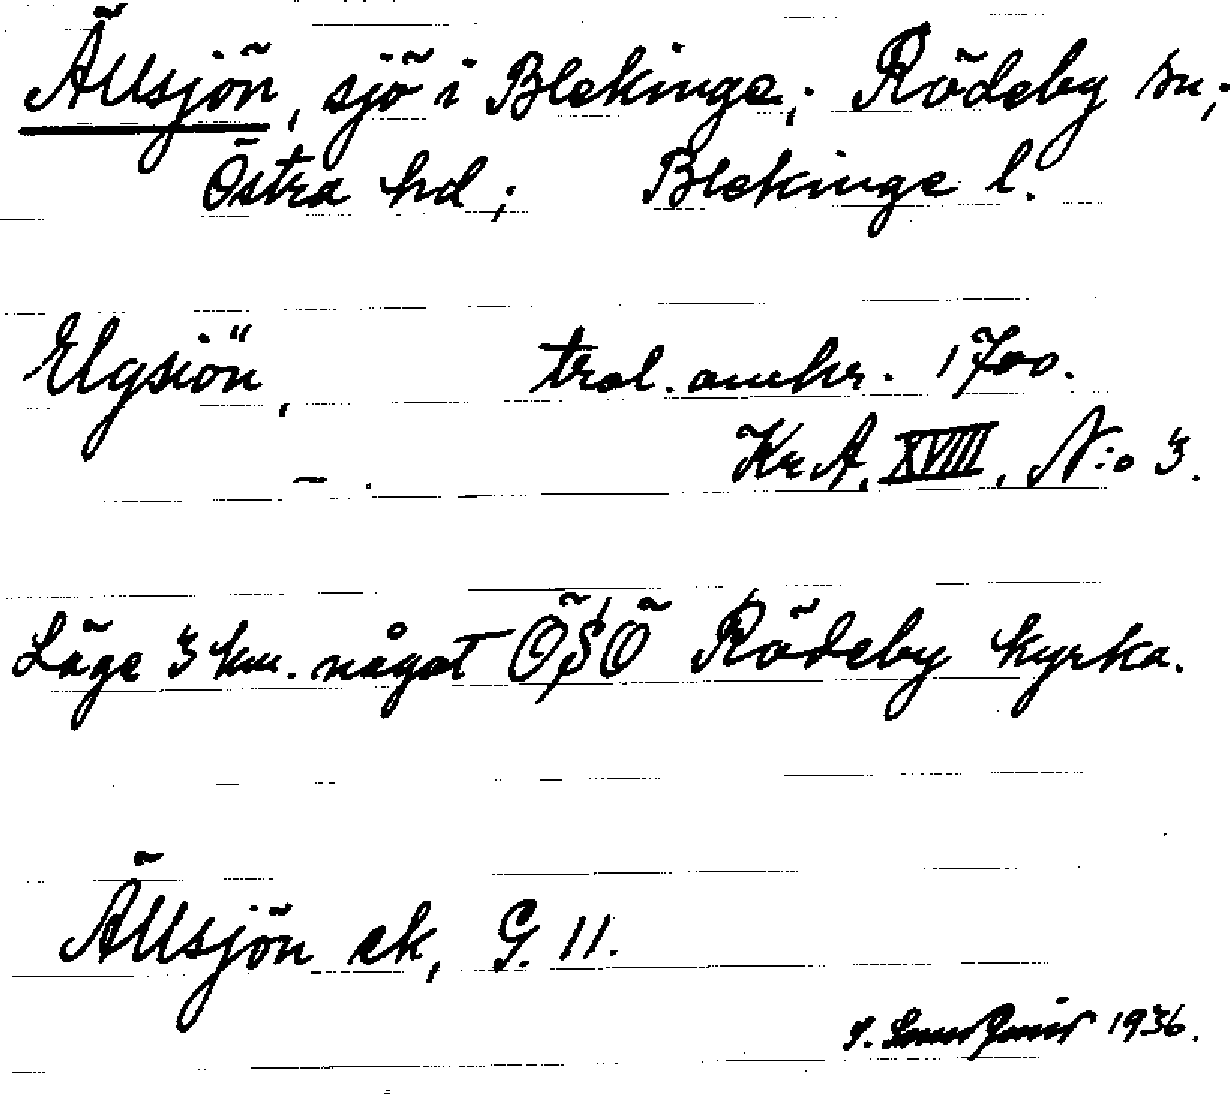 Ällsjön, sjö i Blekinge; Rödeby sn;
Östra hd; Blekinge l.
Elgsiön, trol. omkr. 1700.
– . KrA. XVIII, N:o 3.
Läge 3 km. något ÖSÖ Rödeby kyrka.
Ällsjön ek, G. 11.
1936.